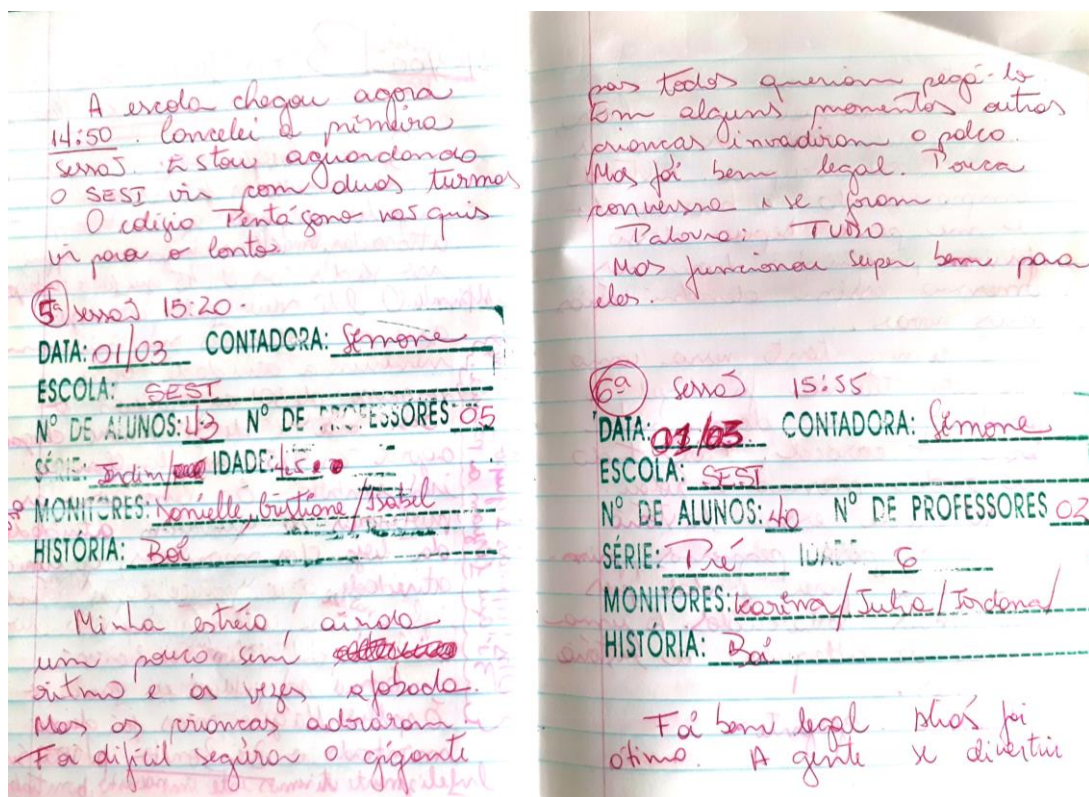 A escola chegou agora
14:50. Cancelei a primeira
sessão. Estou aguardando
o SESI vir com duas turmas
O colégio Pentágono nos quis
vir para o Contos
5ª sessão 15:20.
DATA: 01/03 CONTADORA: Simone
ESCOLA: SESI
Nº DE ALUNOS: 43 Nº DE PROFESSORES 05
SÉRIE: Jardim/ IDADE: 4,5
MONITORES: Danielle, Cristiane/Isabel
HISTÓRIA: Boi
Minha estréia, ainda
um pouco sem
ritmo e às vezes afobada.
Mas as crianças adoraram
Foi difícil segurar o gigante
pois todos queriam pegá-lo
Em alguns momentos outras
crianças invadiram o palco.
Mas foi bem legal. Pouca
conversa e se foram
Palavra: TUDO
Mas funcionou super bem para
eles.
6ª sessão 15:55
DATA: 01/03 CONTADORA: Simone
ESCOLA: SESI
Nº DE ALUNOS: 40 Nº DE PROFESSORES 02
SÉRIE: Pré IDADE 6
MONITORES: Karina/Julia/Jordana/
HISTÓRIA: Boi
Foi bem legal. Aliás foi
ótimo. A gente se divertiu